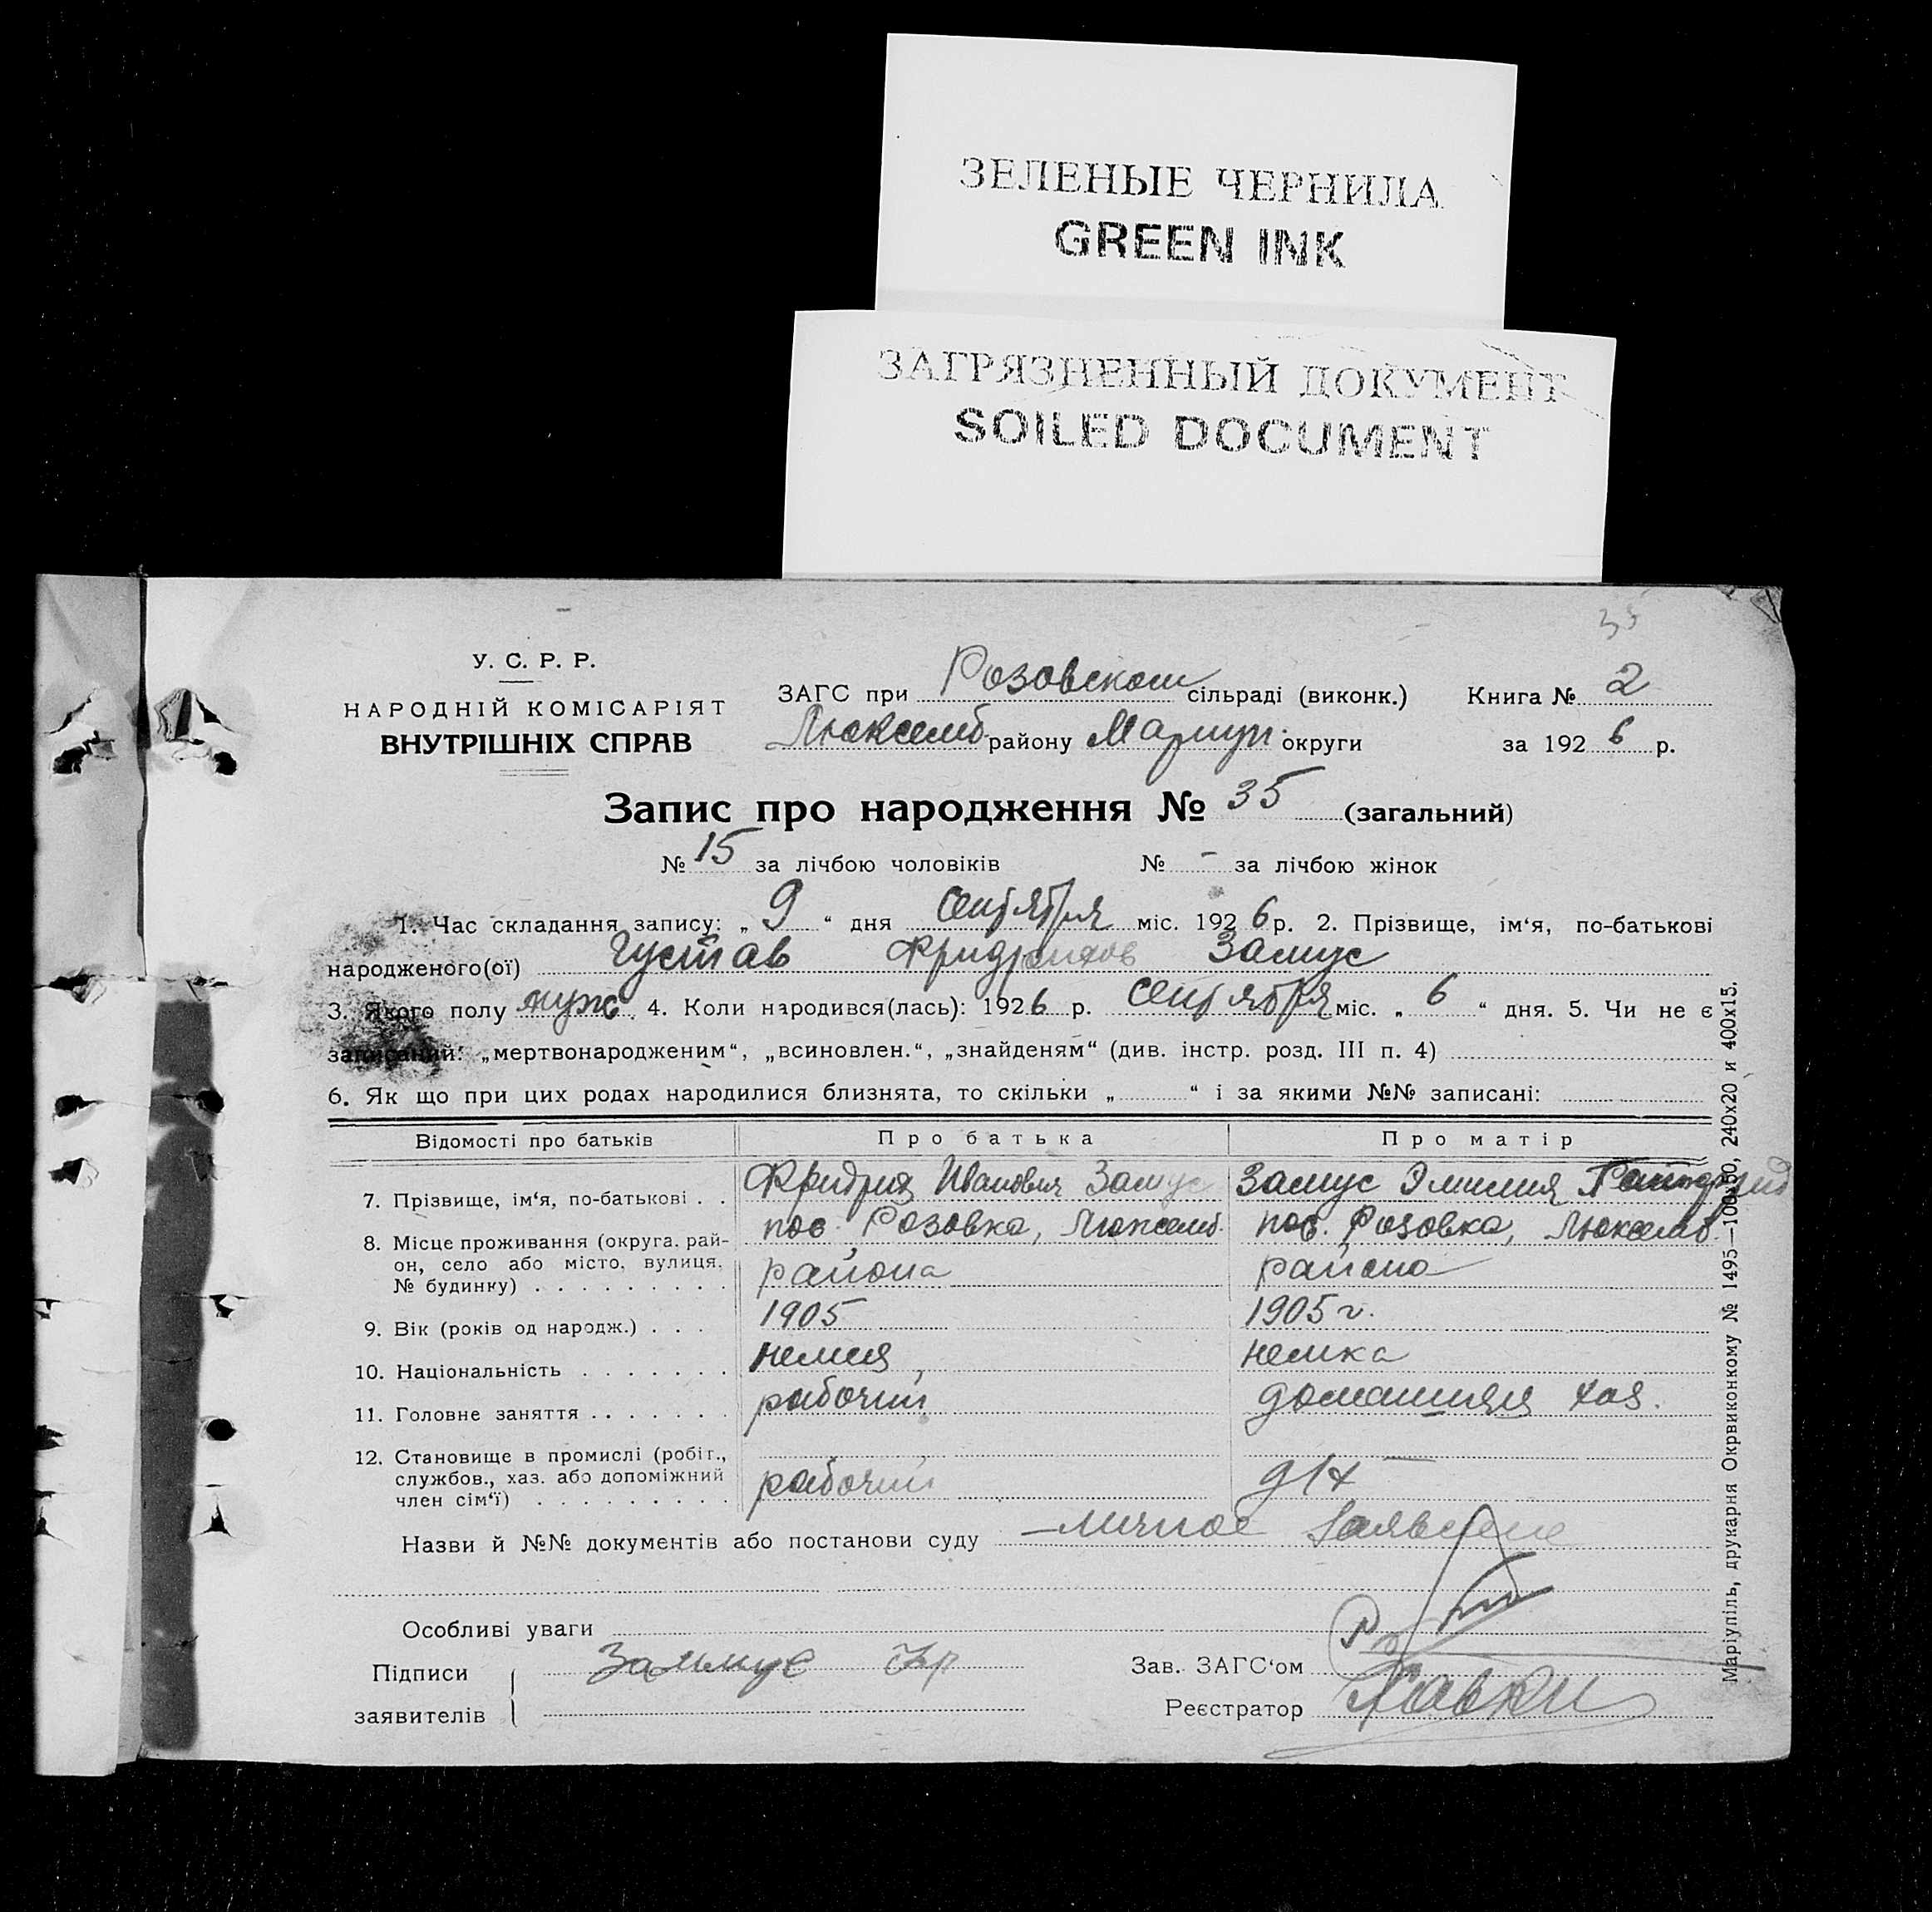 ЗЕЛЕНЫЕ ЧЕРНИЛА
GREEN INK
ЗАГРЯЗНЕННЫЙ ДОКУМЕНТ
SOILED DOCUMENT
35
У. С. Р. Р.
НАРОДНІЙ КОМІСАРІЯТ
ВНУТРІШНІХ СПРАВ
ЗАГС при Розовском сільраді (виконк.) Книга № 2
Люксемб. району Мариуп. округи за 1926 р.
Запис про народження № 35 (загальний)
№ 15 за лічбою чоловіків № - за лічбою жінок
1. Час складання запису: „ 9 “ дня сентября міс. 1926 р. 2. Прізвище, ім‘я, по-батькові
народженого(ої) Густав Фридрихов Замус
3. Якого полу муж 4. Коли народився(лась): 1926 р. сентября міс. „ 6 “ дня. 5. Чи не є
записаний: „мертвонародженим“, „всиновлен.“, „знайденям“ (див. інстр. розд. III п. 4)
6. Як що при цих родах народилися близнята, то скільки „ “ і за якими №№ записані:
Відомості про батьків Про батька Про матір
7. Прізвище, ім‘я, по-батькові . . Фридрих Иванович Замус Замус Эмилия
8. Місце проживання (округа, рай- пос. Розовка, Люксемб. пос. Розовка, Люксемб.
он, село або місто, вулиця, района района
№ будинку) . . . . . . . . .
9. Вік (років од народж.) . . . 1905 1905 г.
10. Національність . . . . . . . немец немка
11. Головне заняття . . . . . . . рабочий домашняя хоз.
12. Становище в промислі (робіт.,
службов., хаз. або допоміжний рабочий д/х
член сім‘ї) . . . . . . . . .
Назви й №№ документів або постанови суду личное заявление
Особливі уваги
Підписи Заммус Фр
заявителів
Зав. ЗАГС‘ом
Реєстратор
Маріупіль, друкарня Окрвиконкому № 1495—100х50, 240х20 и 400х15.